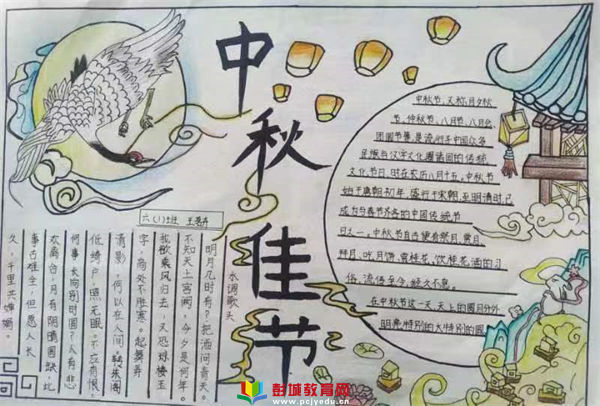 中秋佳节
六(1)班
水调歌头
明月几时有?把酒问青天。
不知天上宫阙,今夕是何年。
我欲乘风归去,又恐琼楼玉
宇,高处不胜寒。起舞弄
清影,何以在人间 转朱阁
低绮户,照无眠。不应有恨,
何事长向别时圆?人有悲
欢离合,月有阴晴圆缺,此
事古难全,但愿人长
久,千里共婵娟。
中秋节,又称月夕、秋
节、仲秋节、八月节、八月会
团圆节等是流行于中国众多
民族与汉字文化圈诸国的传统
文化节日,时在农历八月十五;中秋节
始于唐朝初年,盛行于宋朝,至明清时,已
成为与春节齐名的中国传统节
日之一。中秋节自古便有祭月、赏月、
拜月、吃月饼、赏桂花、饮桂花酒的习
俗,流传至今,经久不息。
在中秋节这一天,天上的圆月分外
明亮特别的大特别的圆
彭城教育网
www.pcjyedu.cn